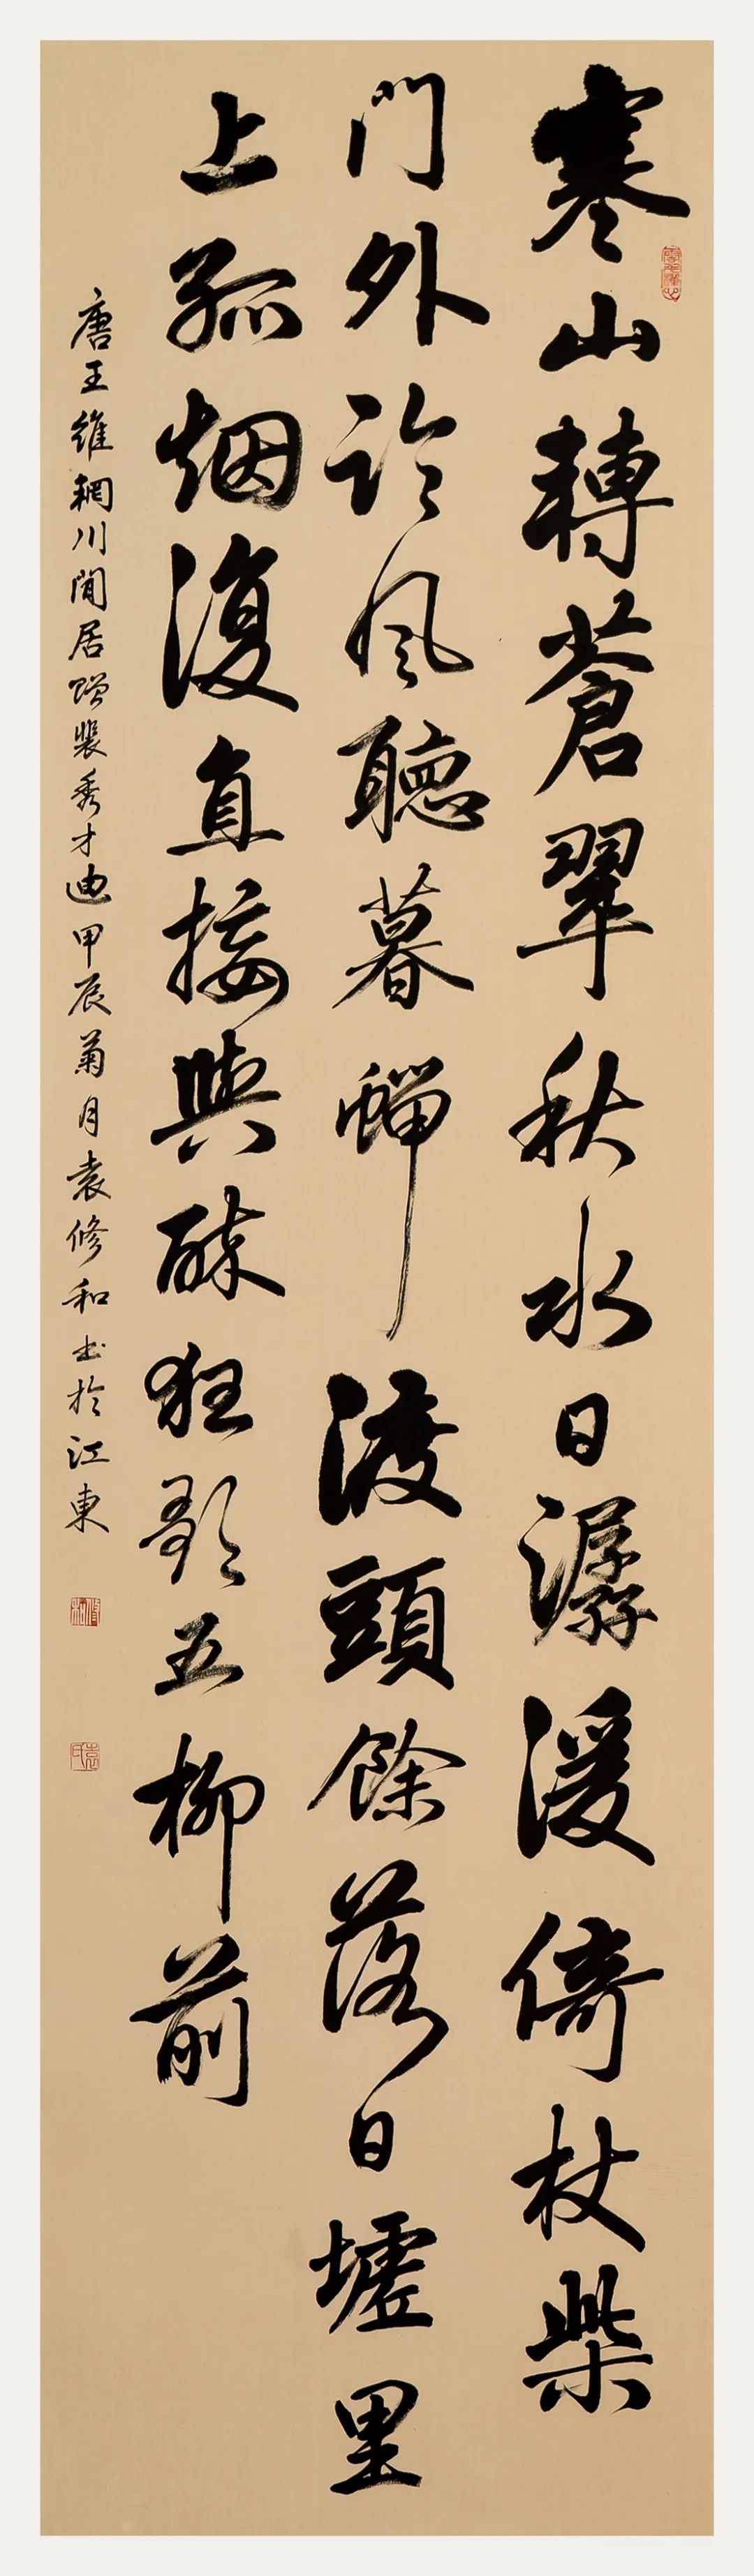 寒山轉蒼翠秋水日潺湲倚杖柴
門外臨風聽暮蟬渡頭餘落日墟里
上孤烟復直接與醉狂歌五柳前
唐王維輞川閒居贈裴秀才迪甲辰菊月袁修和书於江東
修和